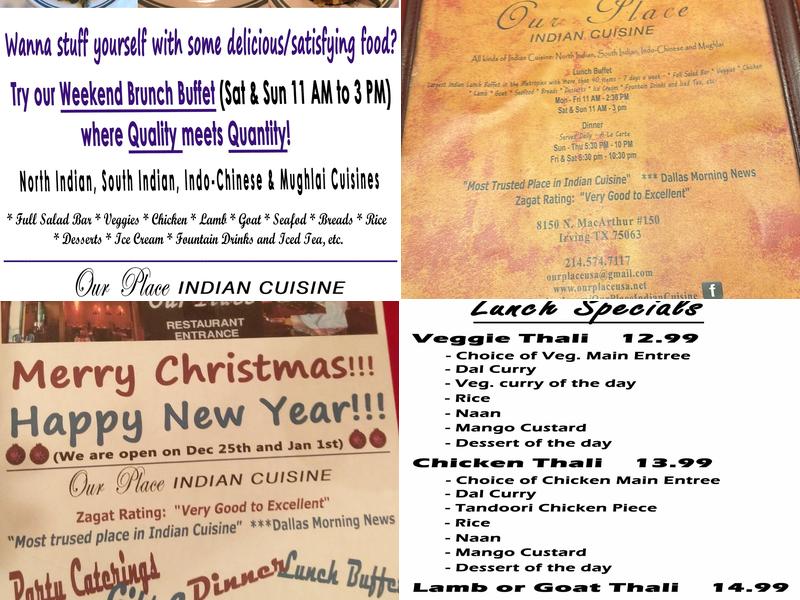 Wanna stuff yourself with some delicious/satisfying food?
Try our Weekend Brunch Buffet (Sat & Sun 11 AM to 3 PM)
where Quality meets Quantity!
North Indian, South Indian, Indo-Chinese & Mughlai Cuisines
* Full Salad Bar * Veggies * Chicken * Lamb * Goat * Seafod * Breads * Rice
* Desserts * Ice Cream * Fountain Drinks and Iced Tea, etc.
Our Place INDIAN CUISINE
Our Place
INDIAN CUISINE
All kinds of Indian Cuisine: North Indian, South Indian, Indo-Chinese and Mughlai
Lunch Buffet
Largest Indian Lunch Buffet in the Metroplex with more than 40 items - 7 days a week - * Full Salad Bar * Veggies * Chicken
* Lamb * Goat * Seafood * Breads * Desserts * Ice Cream * Fountain Drinks and Iced Tea, etc.
Mon - Fri 11 AM - 2:30 PM
Sat & Sun 11 AM - 3 pm
Dinner
Served Daily - A La Carte
Sun - Thu 5:30 PM - 10 PM
Fri & Sat 5:30 pm - 10:30 pm
"Most Trusted Place in Indian Cuisine" *** Dallas Morning News
Zagat Rating: "Very Good to Excellent"
8150 N. MacArthur #150
Irving TX 75063
214.574.7117
ourplaceusa@gmail.com
www.ourplaceusa.net
/OurPlaceIndianCuisine f
Our Place
RESTAURANT
ENTRANCE
Merry Christmas!!!
Happy New Year!!!
(We are open on Dec 25th and Jan 1st)
Our Place INDIAN CUISINE
Zagat Rating: "Very Good to Excellent"
"Most trused place in Indian Cuisine" ***Dallas Morning News
Party Caterings
Dinner
Lunch Buffe
Lunch Specials
Veggie Thali 12.99
- Choice of Veg. Main Entree
- Dal Curry
- Veg. curry of the day
- Rice
- Naan
- Mango Custard
- Dessert of the day
Chicken Thali 13.99
- Choice of Chicken Main Entree
- Dal Curry
- Tandoori Chicken Piece
- Rice
- Naan
- Mango Custard
- Dessert of the day
Lamb or Goat Thali 14.99